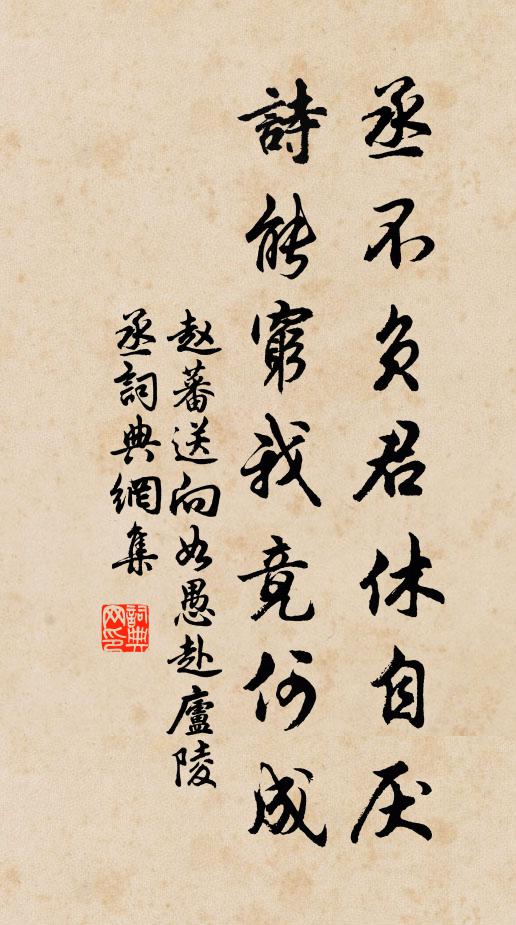 丞不負君休自厌
詩能窮我竟何成
赵蕃送向如愚赴廬陵
丞詞典網集
詞典
网印